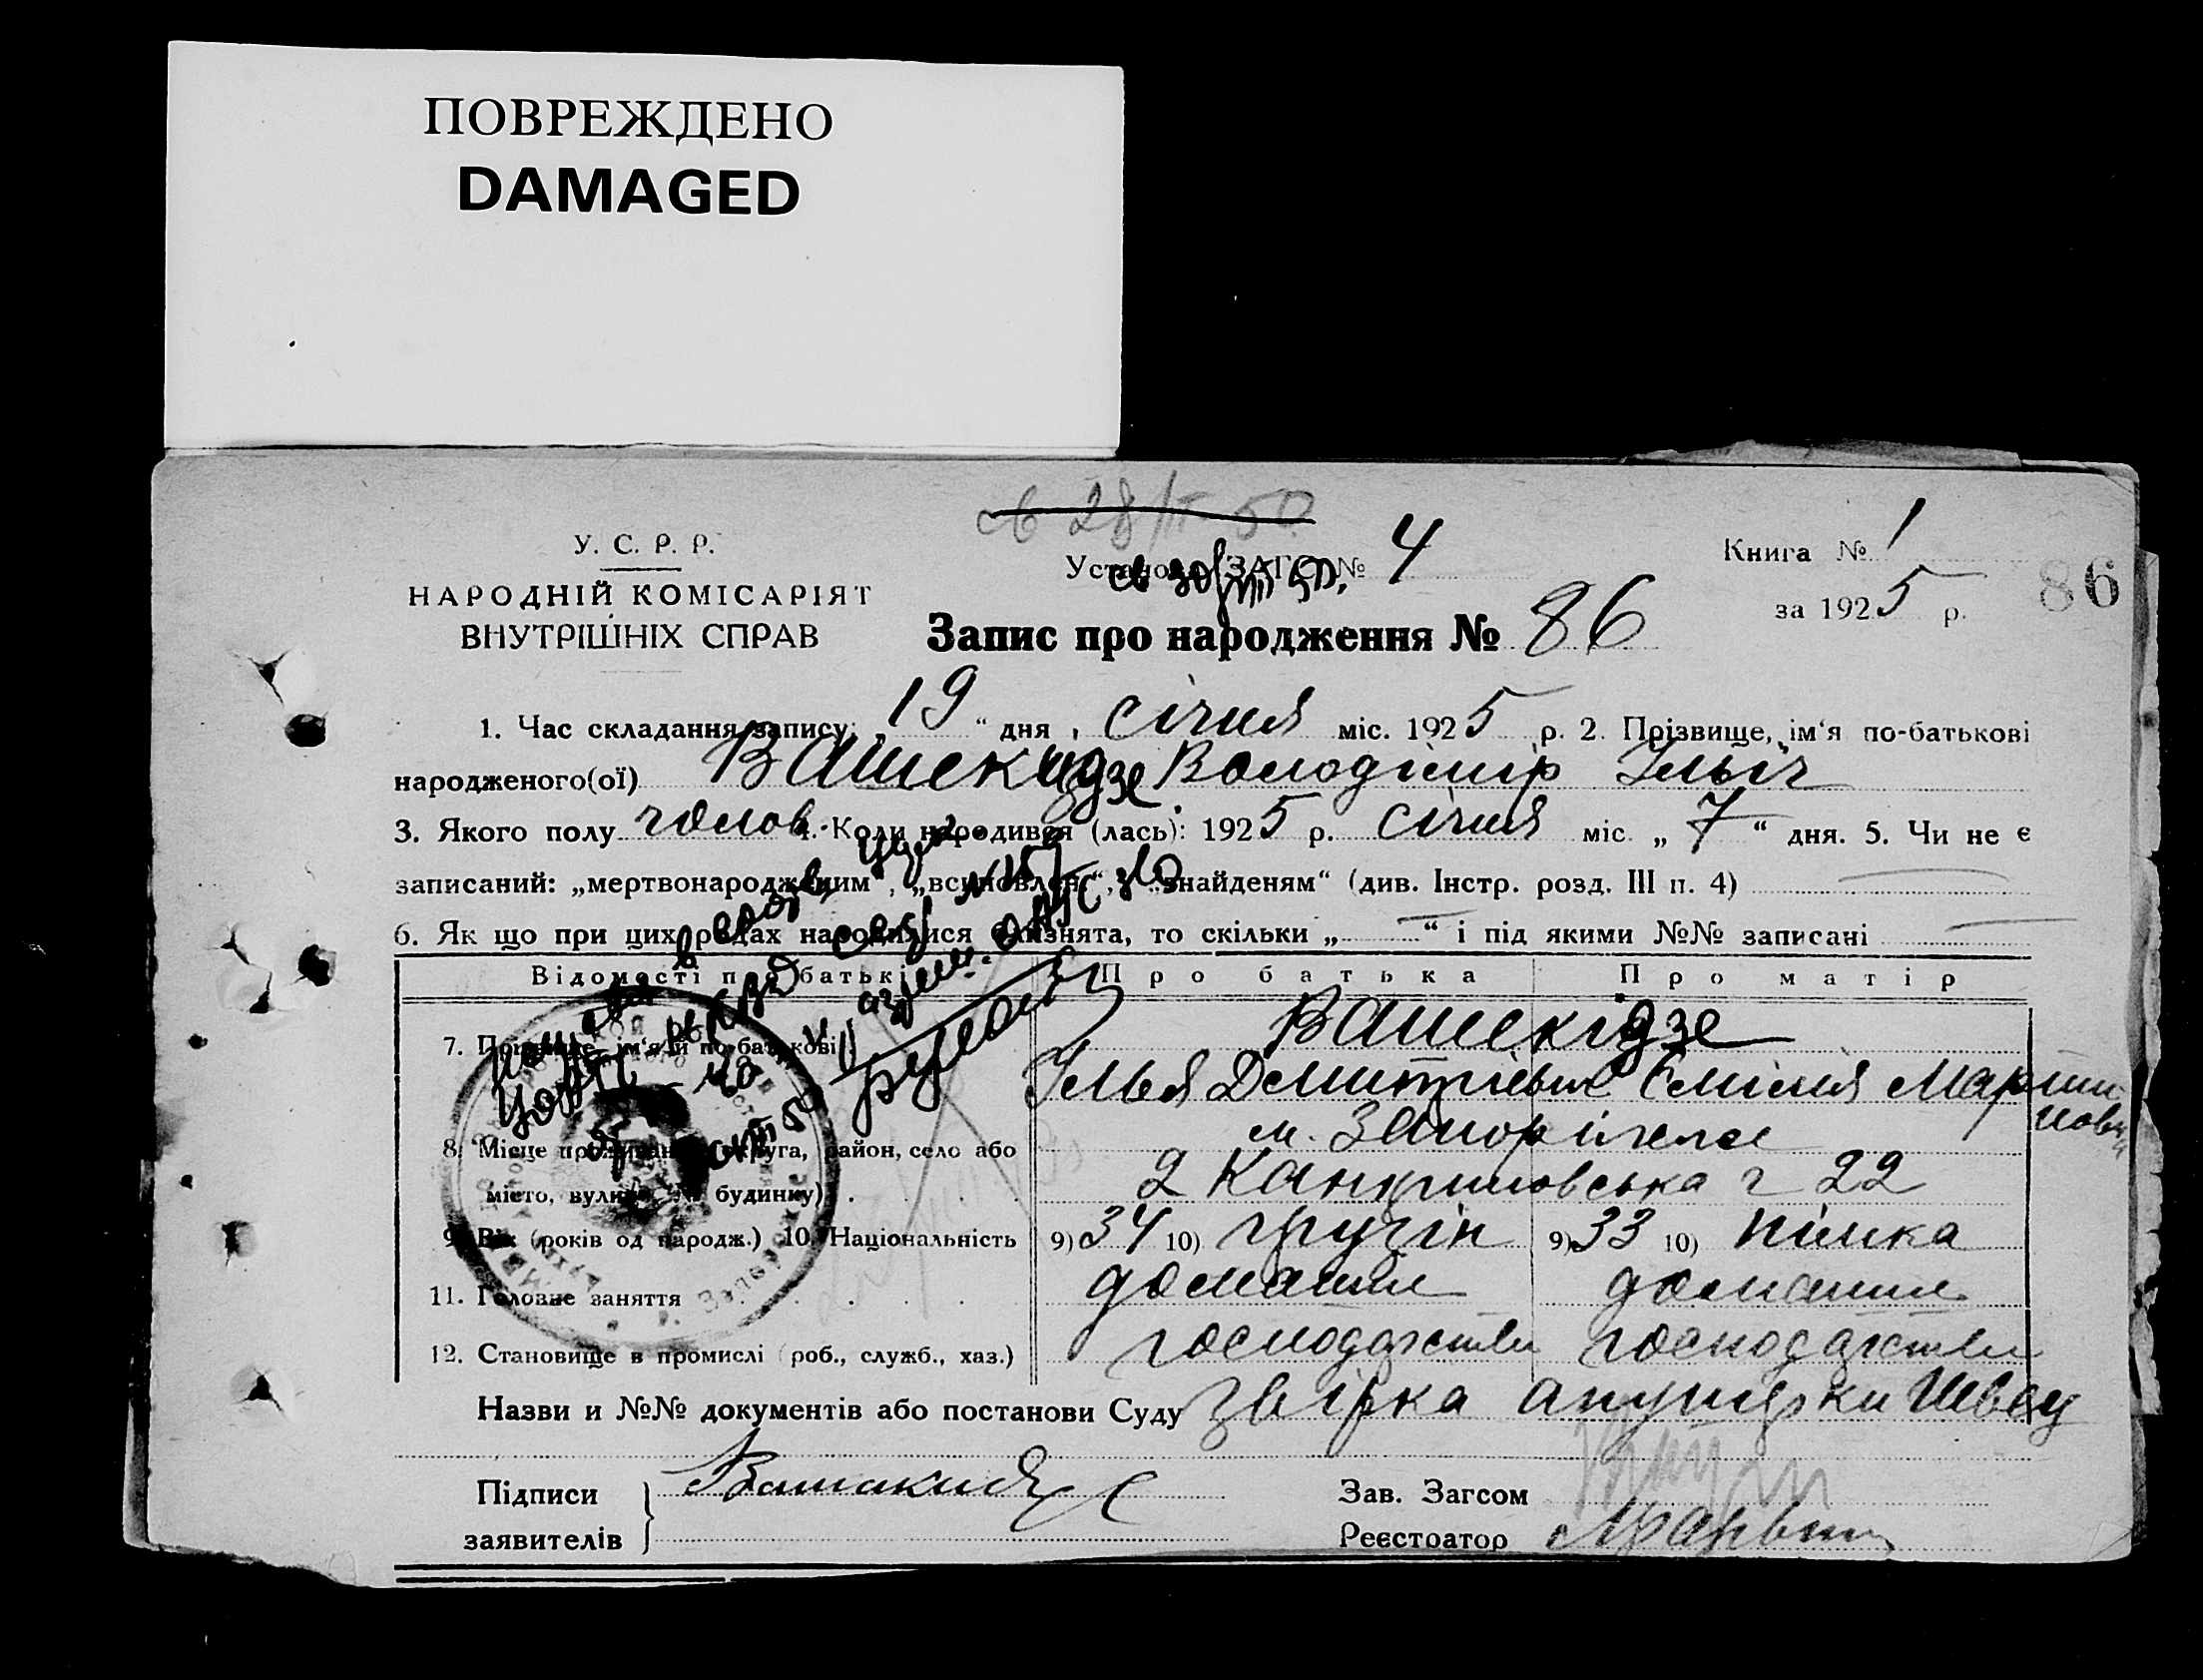 ПОВРЕЖДЕНО
DAMAGED
св 28/III 50
У. С. Р. Р.
НАРОДНІЙ КОМІСАРІЯТ
ВНУТРІШНІХ СПРАВ
Установа ЗАГС № 4
св 30/VIII 50.
Книга № 1
за 1925 р.
86
Запис про народження № 86
1. Час складання запису: „19“ дня, січня міс. 1925 р. 2. Прізвище, ім'я по-батькові
народженого(ої) Вашекидзе Володімір Ільіч
3. Якого полу чолов. 4. Коли народився (лась): 1925 р. січня міс. „7“ дня. 5. Чи не є
записаний: „мертвонародженим“, „всиновлен“, „знайденям“ (див. Інстр. розд. III п. 4)
6. Як що при цих родах народилися близнята, то скільки „—“ і під якими №№ записані —
Відомості про батьків
Про батька
Про матір
7. Прізвище, ім'я й по-батькові
Вашекідзе
Ілья Дмитріевич
Емілія Мартиновн
8. Місце проживання (округа, район, село або
місто, вулиця, № будинку)
м. Запоріжже
2 Канкриновська ч 22
9. Вік (років од народж.) 10. Національність
9) 34 10) грузін
9) 33 10) німка
11. Головне заняття
домашнє
домашнє
12. Становище в промислі (роб., служб., хаз.)
господарство
господарство
Назви и №№ документів або постанови Суду звірка акушерки Швец
Підписи
заявителів
Зав. Загсом
Реєстратор